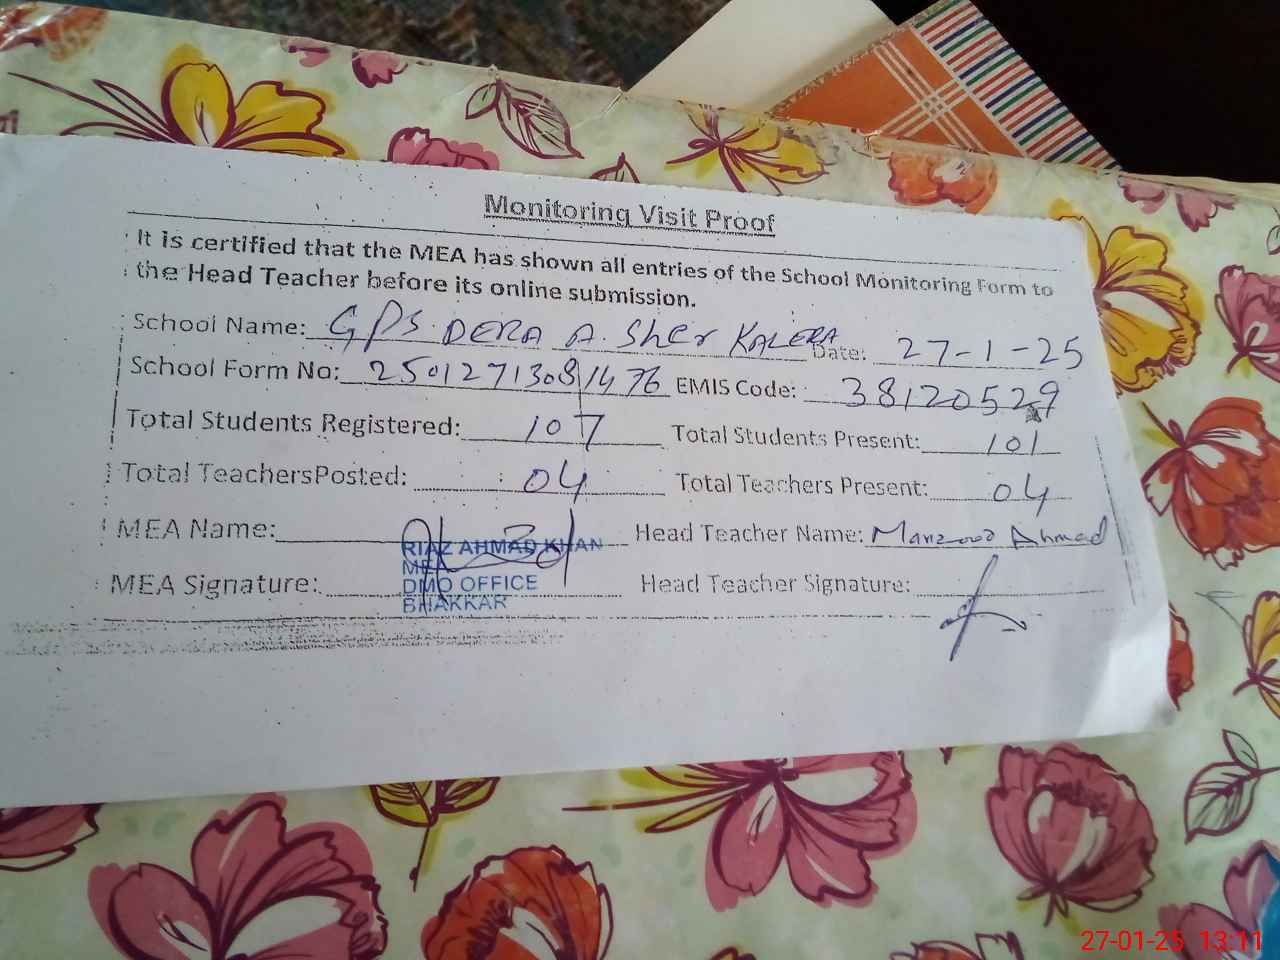 Monitoring Visit Proof
It is certified that the MEA has shown all entries of the School Monitoring Form to
the Head Teacher before its online submission.
School Name: GPS DERA A. Sher KALERA Date: 27-1-25
School Form No: 2501271308 1476 EMIS Code: 38120529
Total Students Registered: 107 Total Students Present: 101
Total TeachersPosted: 04 Total Teachers Present: 04
MEA Name: Head Teacher Name: Manzoor Ahmad
RIAZ AHMAD KHAN
MEA
MEA Signature: DMO OFFICE Head Teacher Signature:
BHAKKAR
27-01-25 13:11